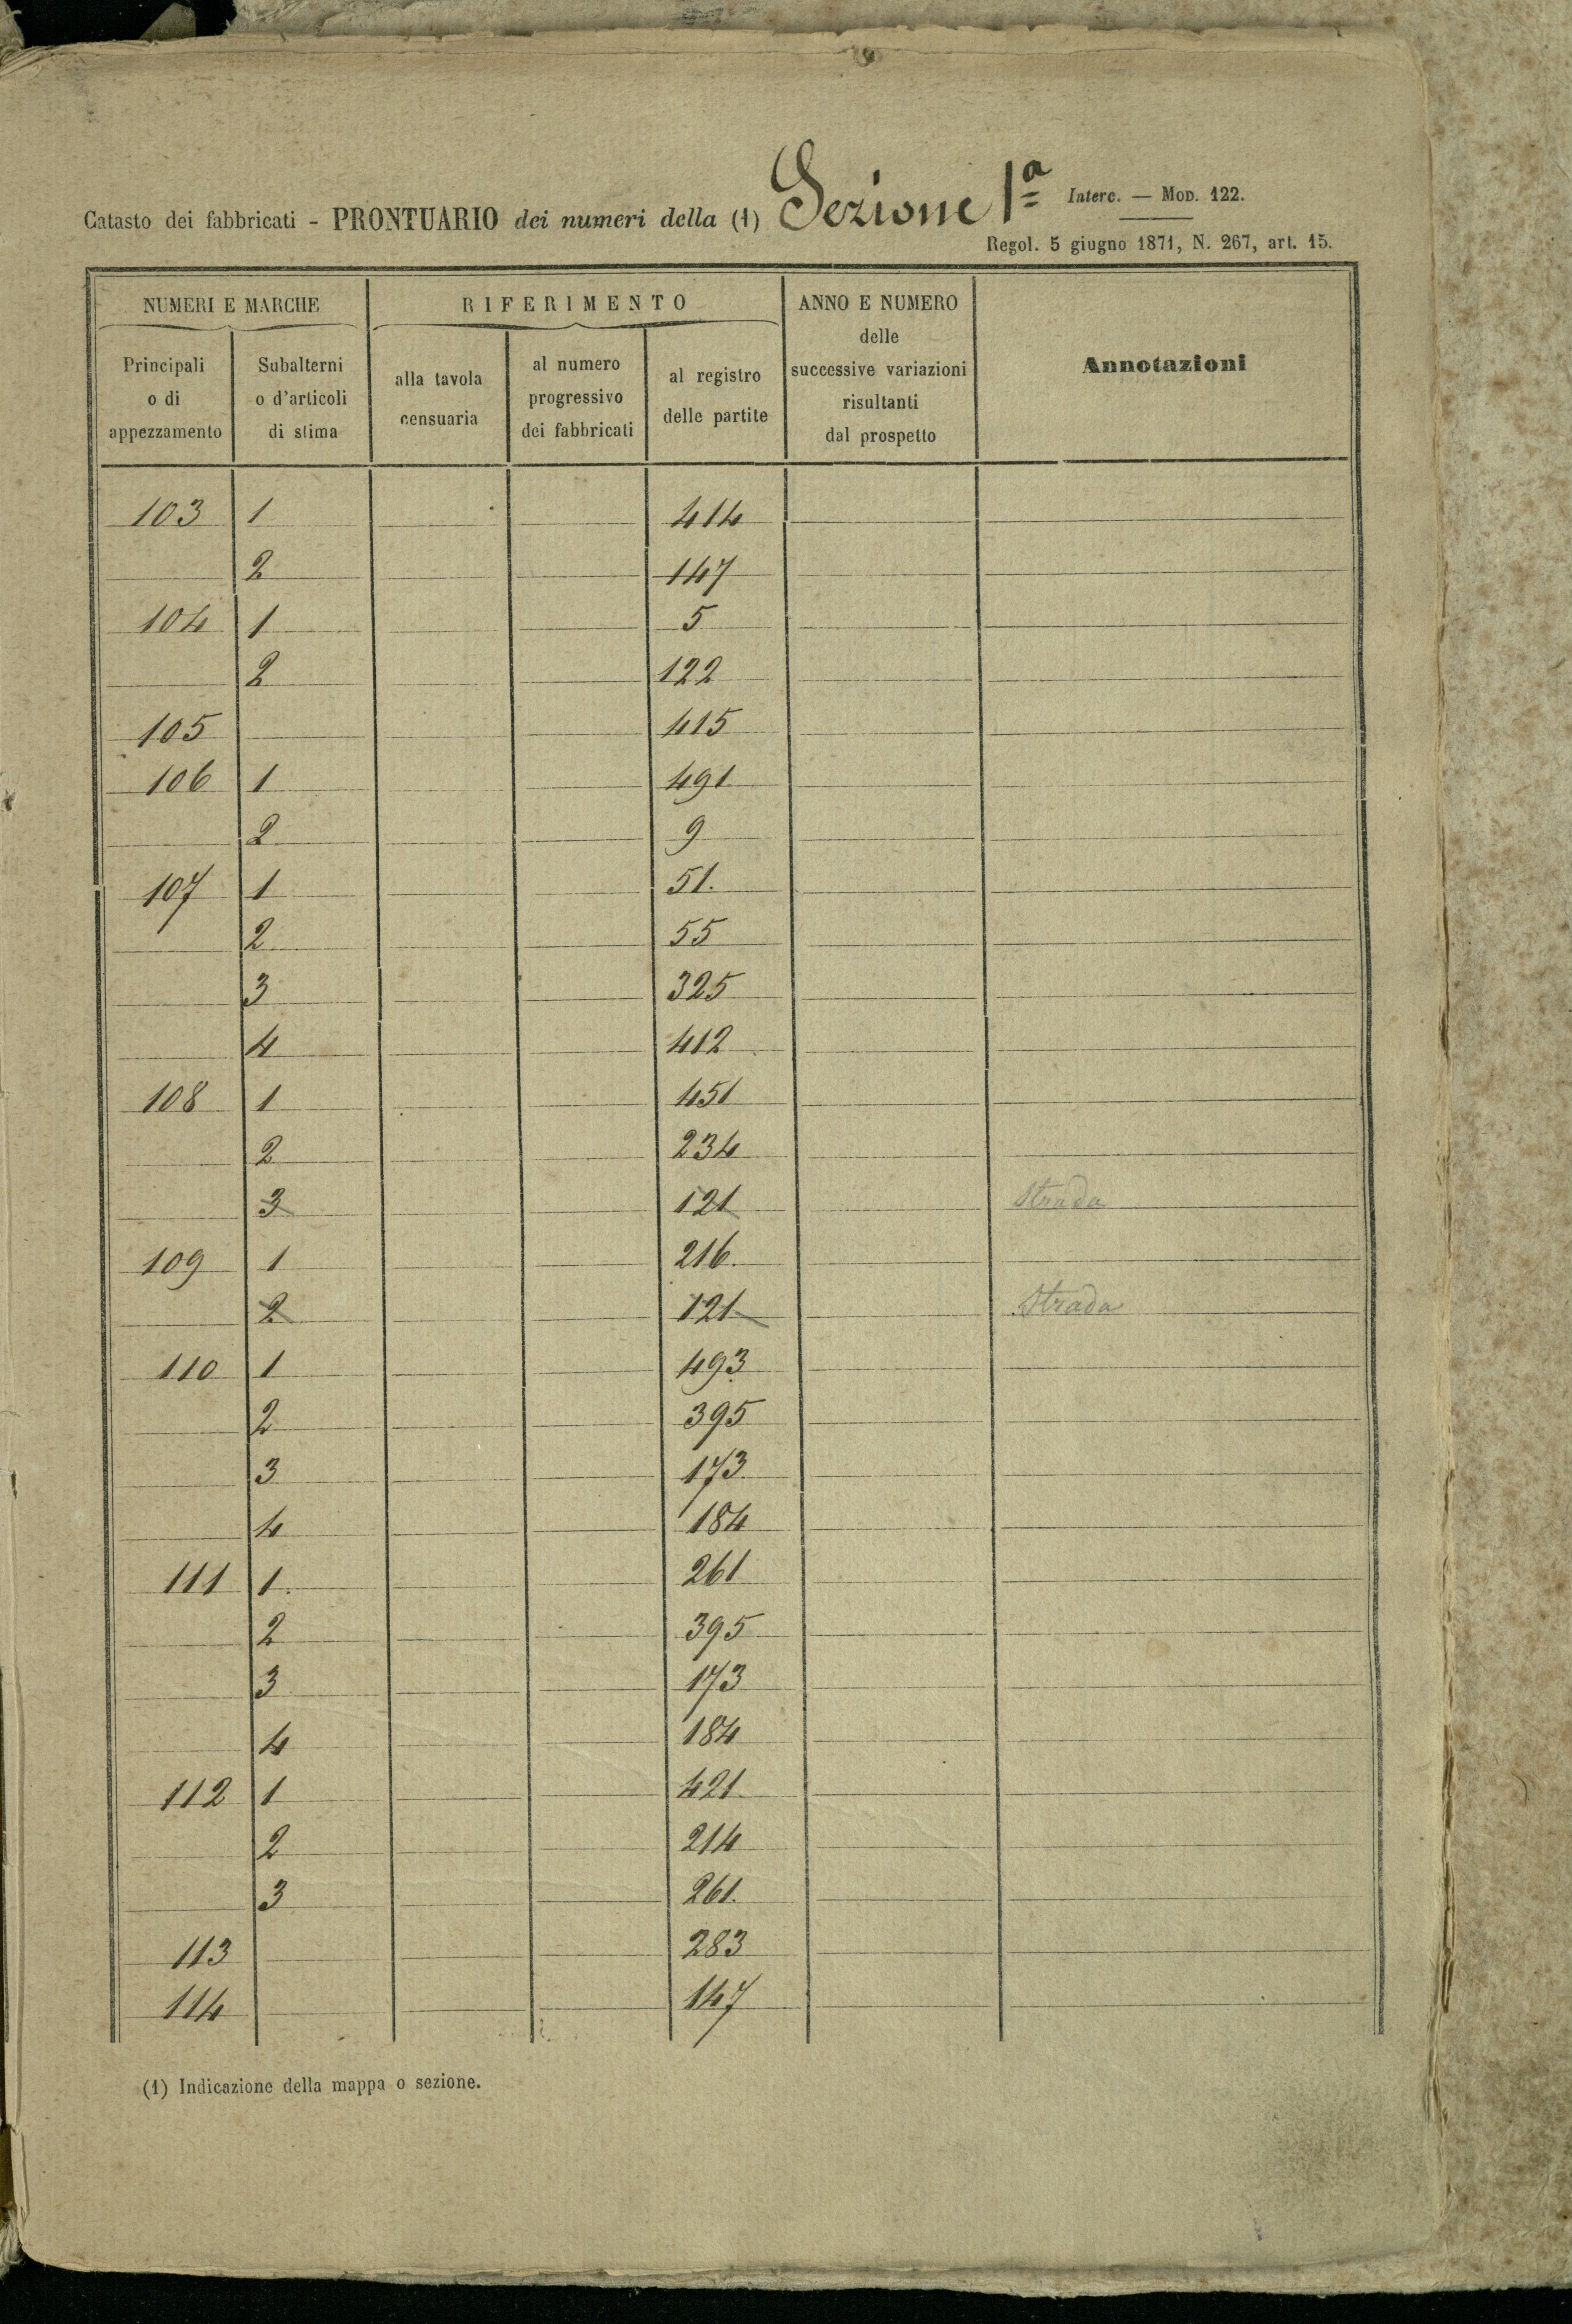 Catasto dei fabbricati - PRONTUARIO dei numeri della (1) Sezione 1ª Interc. — Mod. 122.
Regol. 5 giugno 1871, N. 267, art. 15.
NUMERI E MARCHE RIFERIMENTO ANNO E NUMERO delle successive variazioni risultanti dal prospetto Annotazioni
Principali o di appezzamento Subalterni o d'articoli di stima alla tavola censuaria al numero progressivo dei fabbricati al registro delle partite
103 1 414
2 147
104 1 5
2 122
105 415
106 1 491
2 9
107 1 51.
2 55
3 325
4 412
108 1 451
2 234
3 121 Strada
109 1 216.
2 121 Strada
110 1 493
2 395
3 173
4 184
111 1. 261
2 395
3 173
4 184
112 1 421.
2 214
3 261.
113 283
114 147
(1) Indicazione della mappa o sezione.